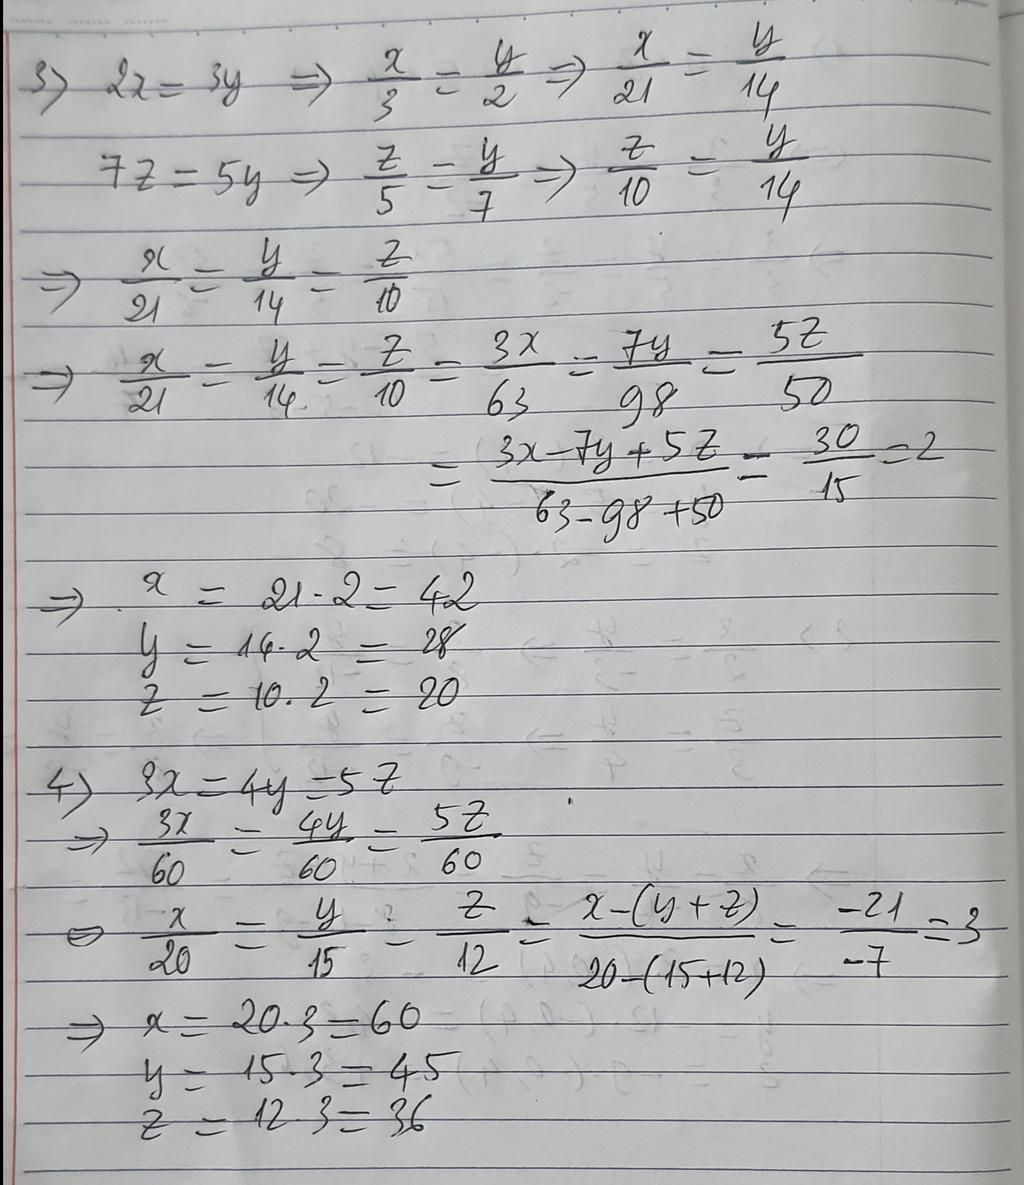 3) 2x = 3y => x/3 = y/2 => x/21 = y/14
7z = 5y => z/5 = y/7 => z/10 = y/14
=> x/21 = y/14 = z/10
=> x/21 = y/14 = z/10 = 3x/63 = 7y/98 = 5z/50
= (3x-7y+5z)/(63-98+50) = 30/15 = 2
=> x = 21.2 = 42
y = 14.2 = 28
z = 10.2 = 20
4) 3x = 4y = 5z
=> 3x/60 = 4y/60 = 5z/60
<=> x/20 = y/15 = z/12 = (x-(y+z))/(20-(15+12)) = -21/-7 = 3
=> x = 20.3 = 60
y = 15.3 = 45
z = 12.3 = 36